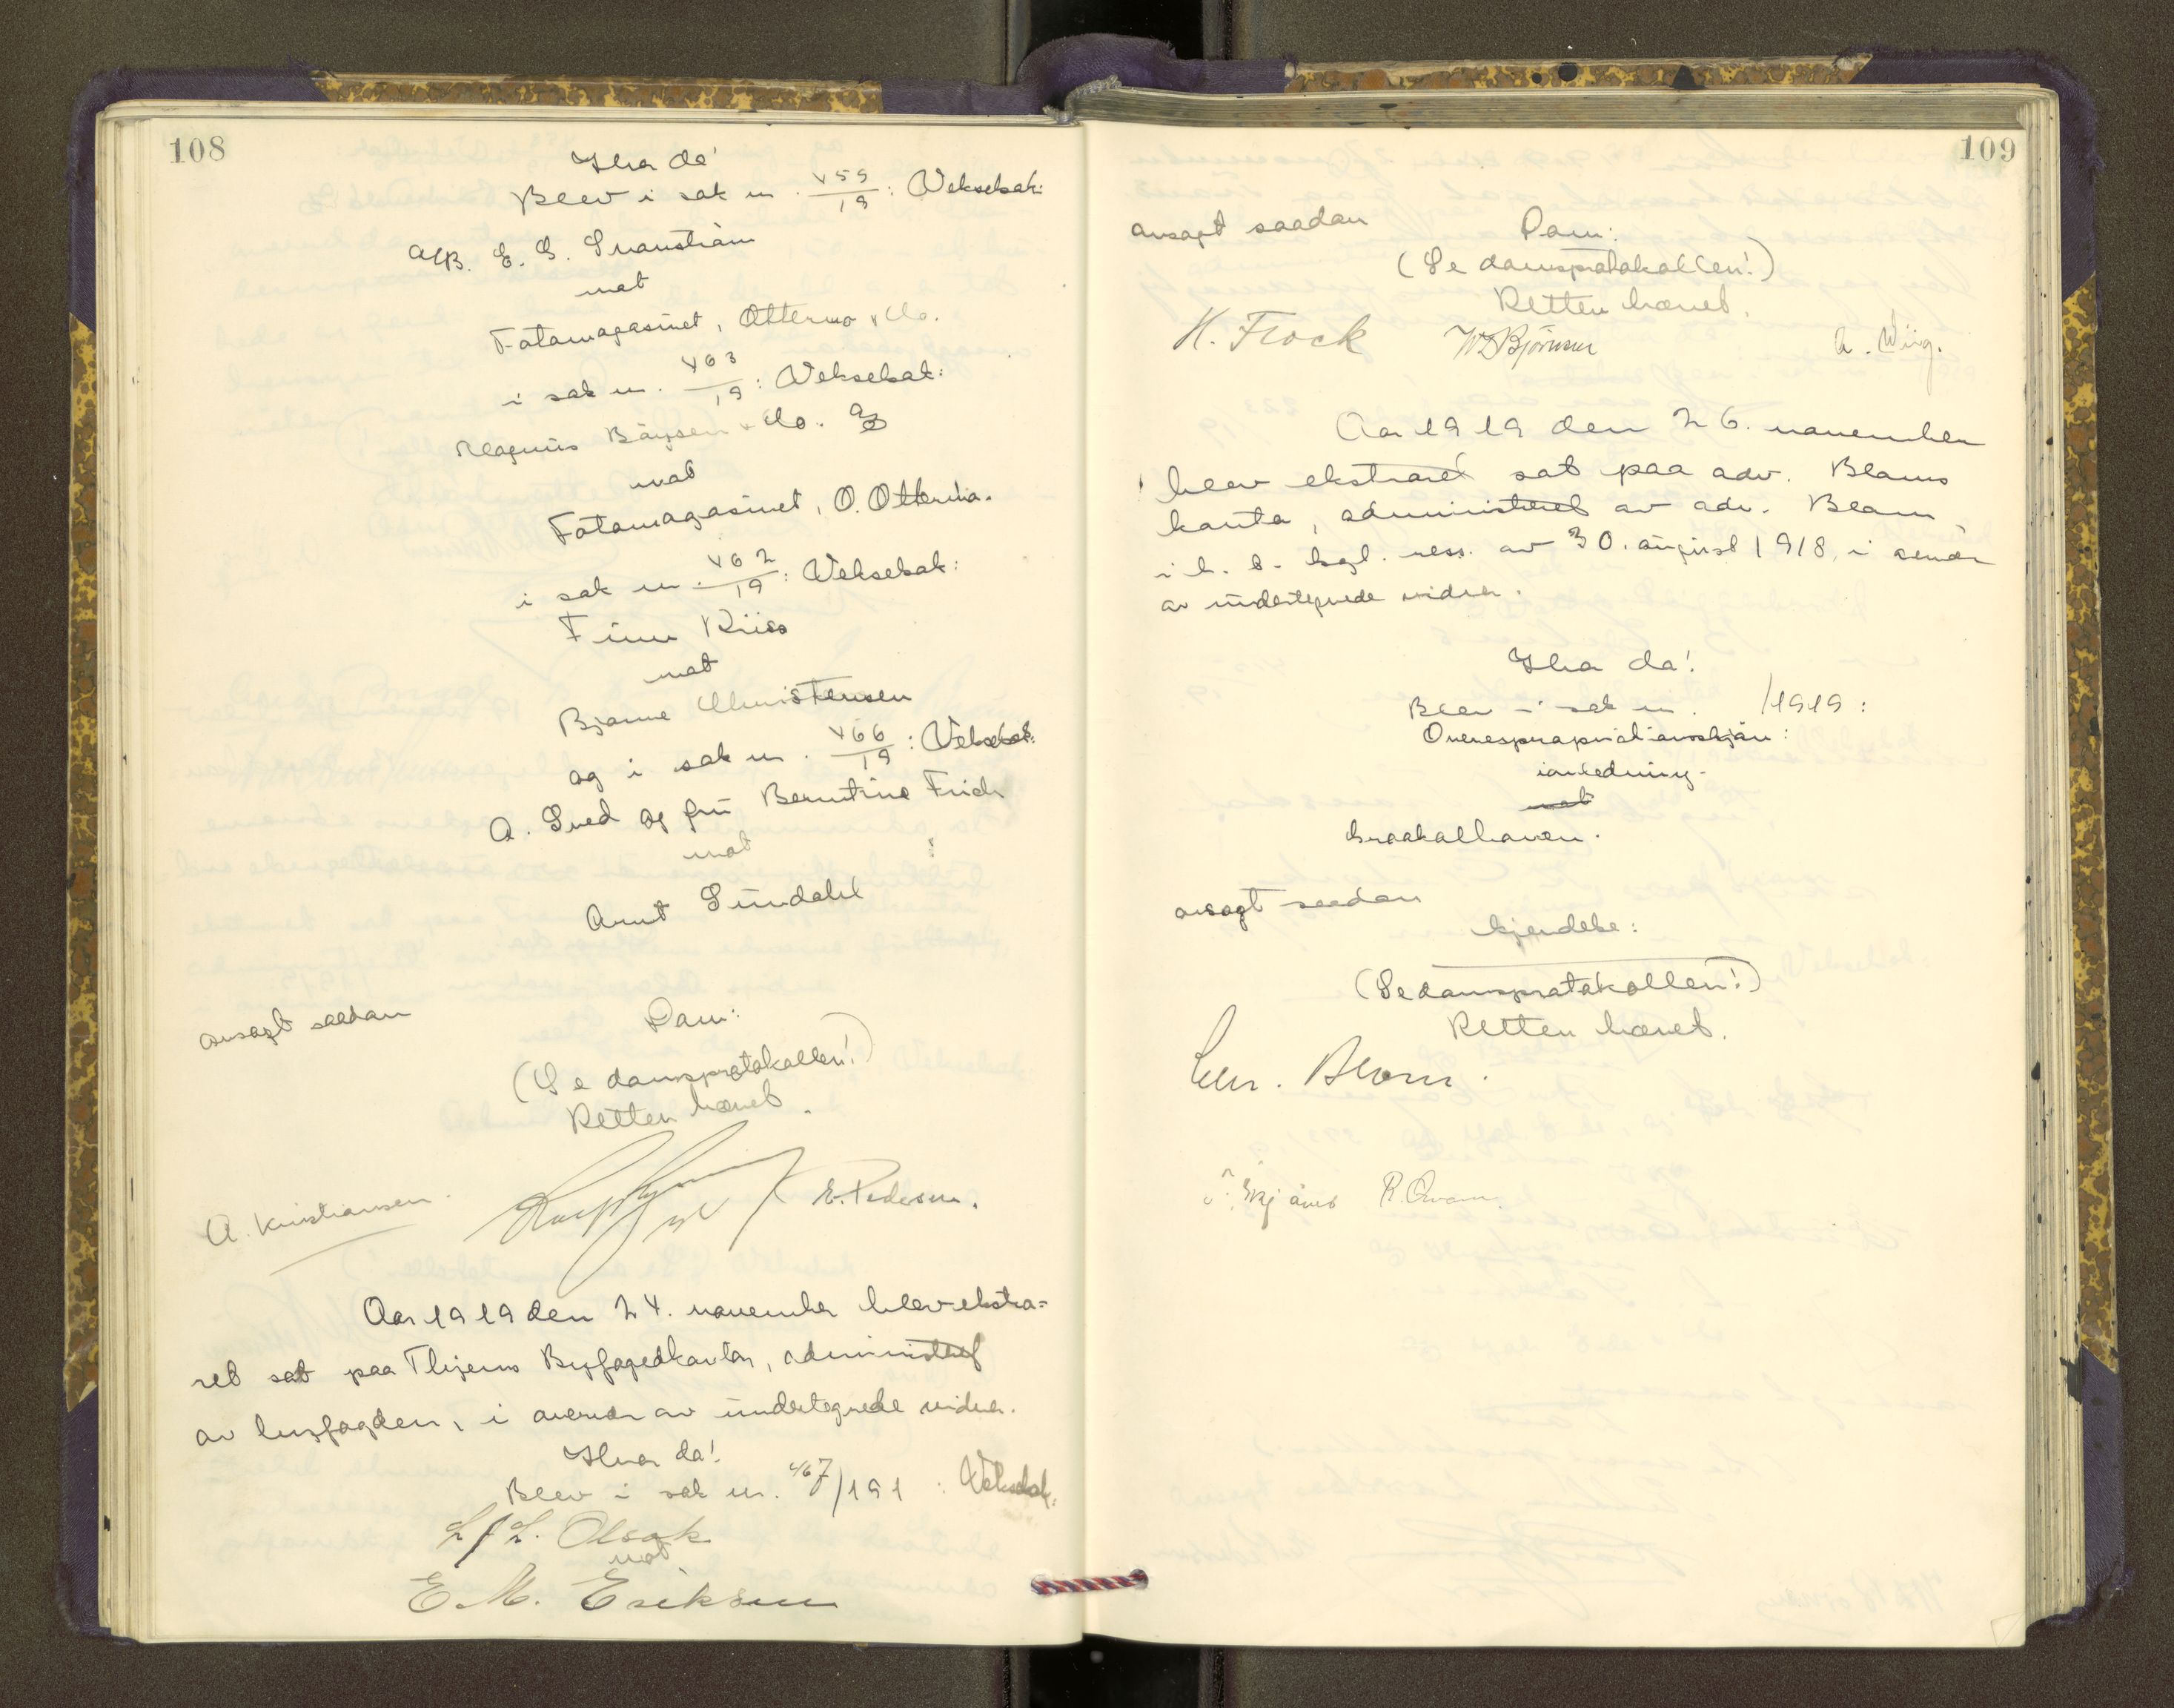 108
Hvor da!
Blev i sak nr. 459/19: Vekselsak:
A/B. E. G. Svanström
mot
Fotomagasinet, Ottermo & Co.
i sak nr. 463/19: Vekselsak:
Magnus Bøysen & Co. %
mot
Fotomagasinet, O. Ottermo.
i sak nr. 462/19: Vekselsak:
Finn Riiss
mot
Bjarne Christensen
og i sak nr. 466/19: Vekselsak:
A. Sved og fru Berntine Frich
mot
Arnt Sundahl
avsagt saadan
Dom:
(Se domsprotokollen!)
Retten hævet.
A. Kristiansen. E. Pedersen.
Aar 1919 den 24. november blev ekstra=
ret sat paa Thjems Byfogedkontor, administret
av byfogden, i overvær av undertegnede vidner.
Hvor da!
Blev i sak nr. 467/191 : Vekselsak:
L/L. Olsok
mot
E. M. Eriksen
109
avsagt saadan
Dom:
(Se domsprotokollen!)
Retten hævet.
H. Frock W Bjørnson A. Wiig.
Aar 1919 den 26. november
blev ekstraret sat paa adv. Bloms
kontor, administreret av adv. Blom,
i h. t. kgl. ress. av 30. august 1918, i overvær
av undertegnede vidner.
Hvor da!
Blev i sak nr. /1919:
Overekspropriationsskjøn:
i anledning
mot
Graakalbanen.
avsagt saadan
kjendelse:
(Se domsprotokollen!)
Retten hævet.
Chr. Blom.
R. Qvam.